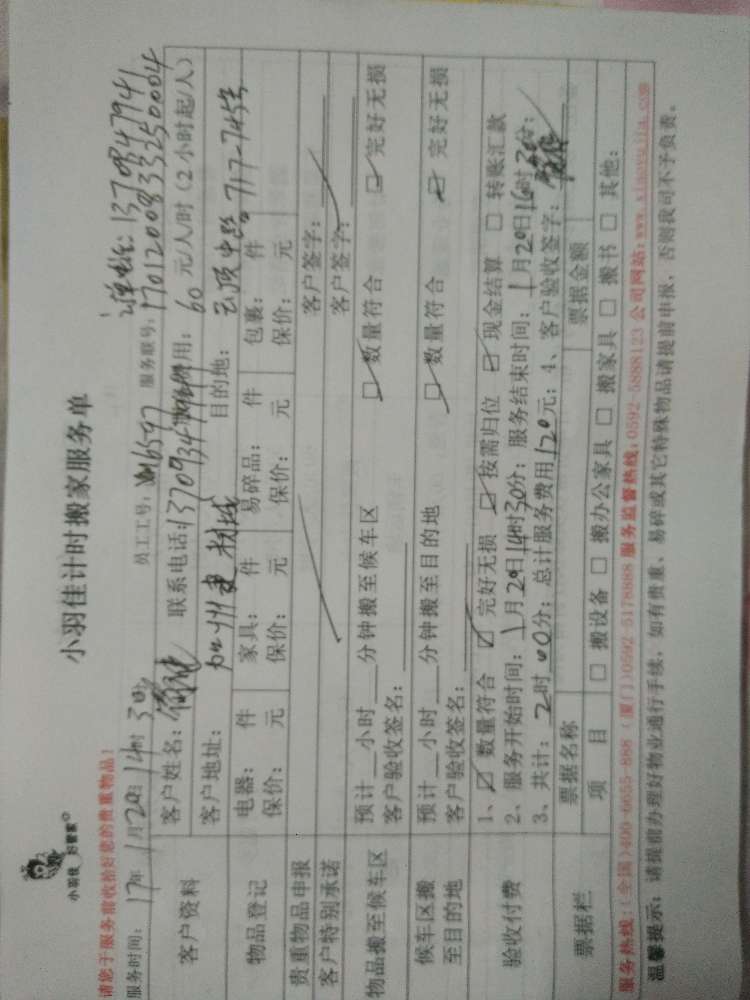 小羽佳 好管家
小羽佳计时搬家服务单
订单电话：13709347941
请您于服务前收拾好您的贵重物品！
服务时间：17年1月20日14时30分 员工工号：XM6597 服务联号：1701200833250004
客户资料 客户姓名： 联系电话：13709347941 费用：60元/人/时（2小时起/人）
客户地址： 目的地：云顶中路717-745号
物品登记 电器： 件 家具： 件 易碎品： 件 包裹： 件
保价： 元 保价： 元 保价： 元 保价： 元
贵重物品申报 客户签字：
客户特别承诺 客户签字：
物品搬至候车区 预计__小时__分钟搬至候车区 □数量符合 □完好无损
客户验收签名：
候车区搬至目的地 预计__小时__分钟搬至目的地 □数量符合 □完好无损
客户验收签名：
验收付费 1、☑数量符合 ☑完好无损 ☑按需归位 ☑现金结算 □转账汇款
2、服务开始时间：1月20日14时30分；服务结束时间：1月20日16时30分；
3、共计：2时00分；总计服务费用120元；4、客户验收签字：
票据栏 票据名称 票据金额
项目 □搬设备 □搬办公家具 □搬家具 □搬书 □其他：
服务热线：（全国）400-6655-888（厦门）0592 5178888 服务监督热线：0592-5888123 公司网站：www.xiaoyujia.com
温馨提示：请提前办理好物业通行手续，如有贵重、易碎或其它特殊物品请提前申报，否则我司不予负责。